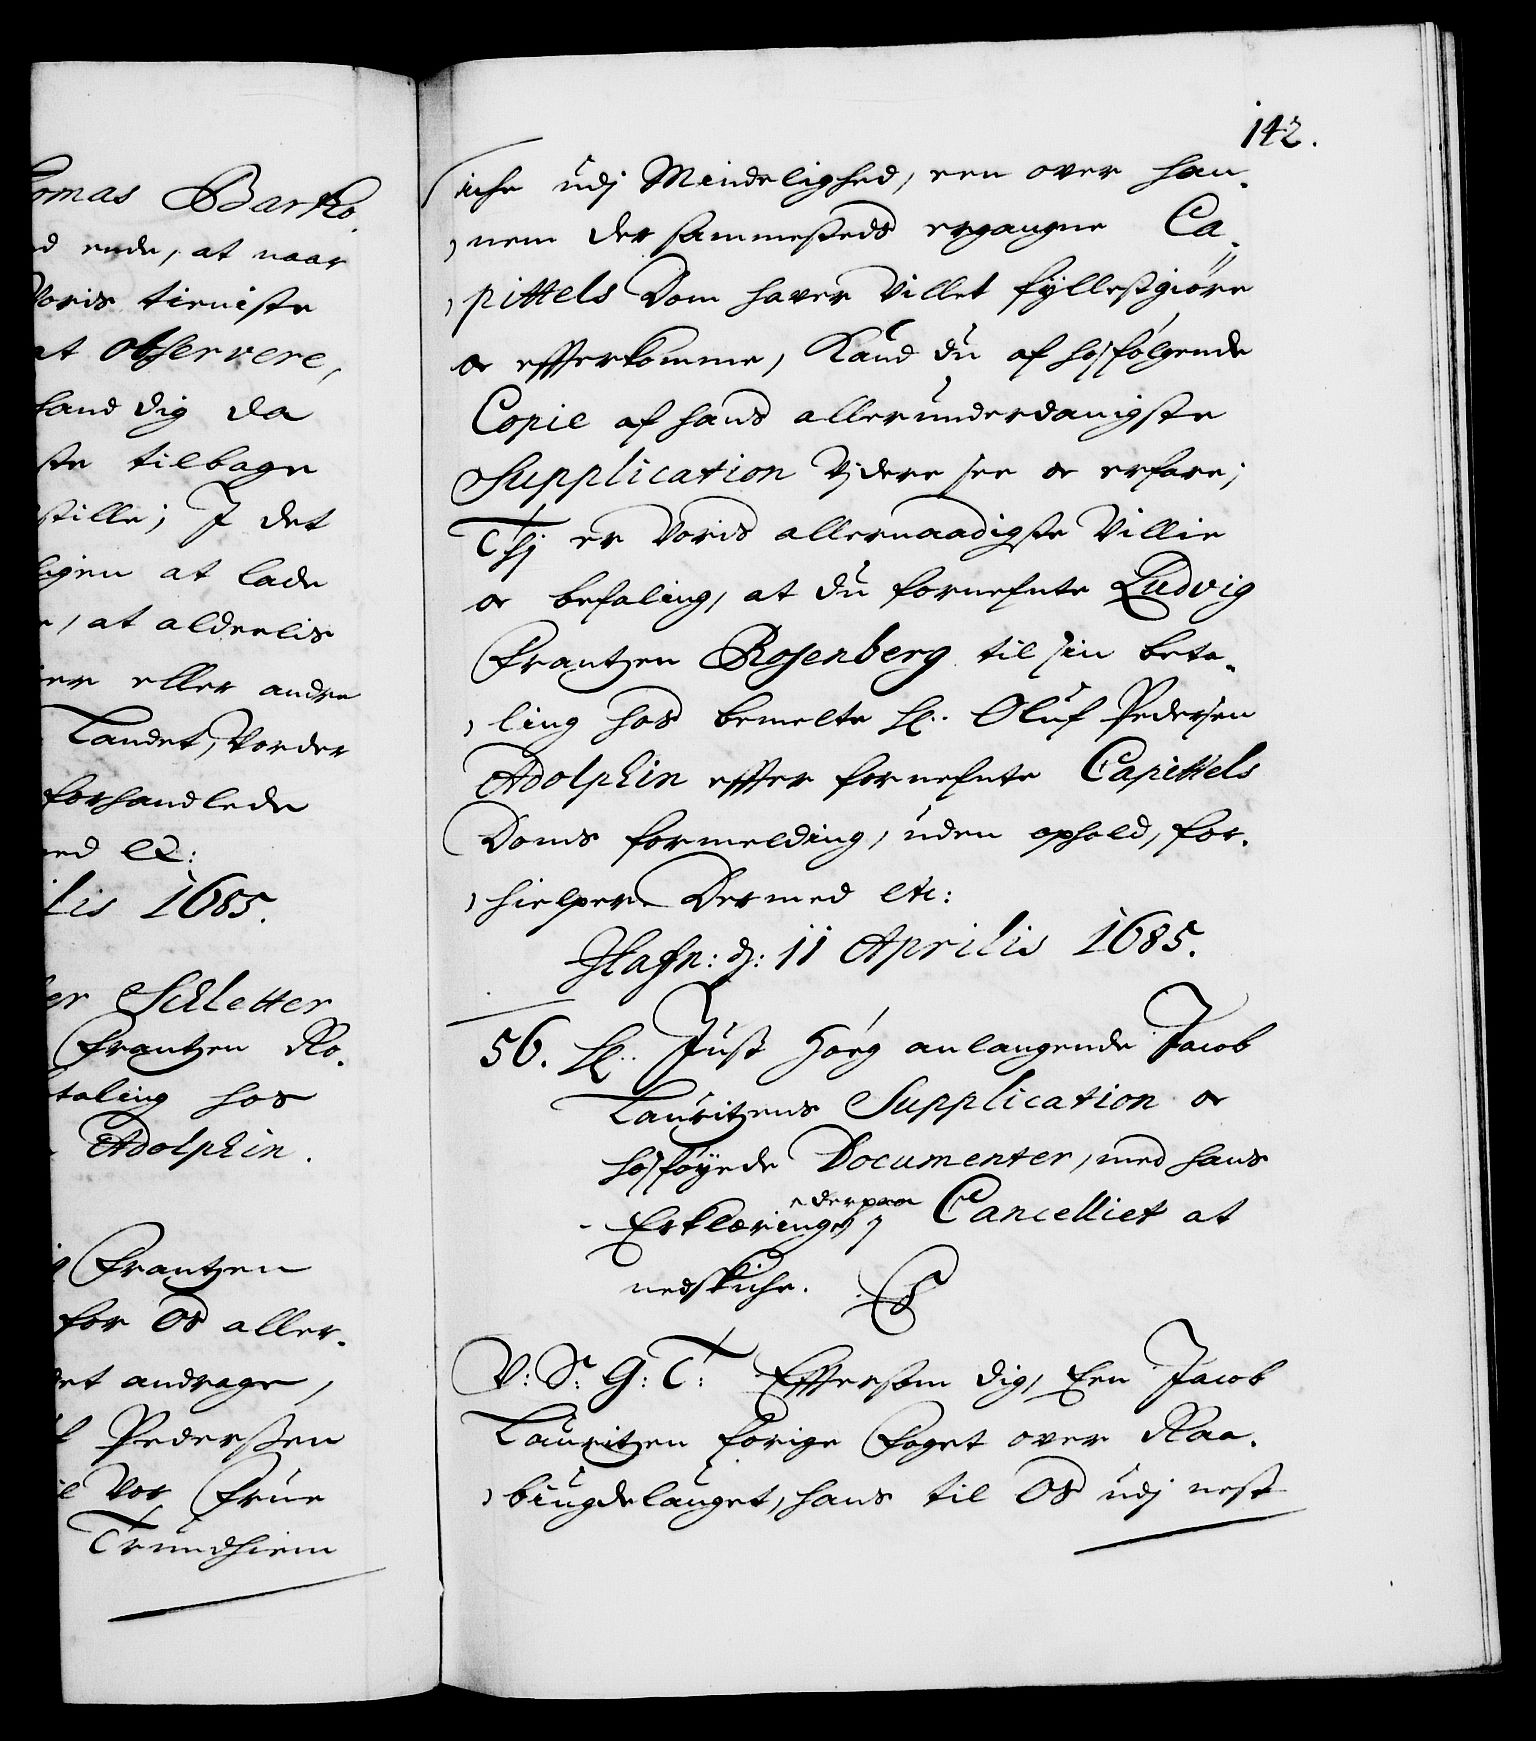 omas Bartho
ed ende, at naar
Voris tieniste
at observere,
haand dig da
ste tilbage
stille; I det
ligen at lade
e, at aldeelis
ier eller andre
Landet, Vorder
forhandlede
med etc:
lis 1685.
er Schletter
Frantzen Ro-
taling hos
Adolphin.
g Frantzen
for Os aller-
det andrage,
f Pedersßen
il Vor Frue
Trundhiem
142.
iche udj Mindelighed, een over han-
nem der sammesteds ergangne Ca-
pittels Dom haver Villet fyllestgiøre
oc effterkomme, Kand du af hosfølgende
Copie af hans allerunderdanigste
Supplication Vjdere see oc erfare;
Thj er Voris allernaadigste Villie
oc befaling, at du fornefnte Ludvig
Frantzen Rosenberg til sin beta-
ling hos bemelte Sl. Oluf Pedersen
Adolphin effter fornefnte Capittels
Doms formelding, uden ophold, for-
hielper. Dermed etc:
Hafn: d: 11 Aprilis 1685.
56. Hr. Just Høeg anlangende Jacob
Lauritzens Supplication oc
hosføyede Documenter, med hans
Erklæring derpaa j Cancelliet at
nedskiche.
V: S: G: T: Effersom dig, Een Jacob
Lauritzen forige Foget over Raa-
biugdelauget, hans til Os udj nest